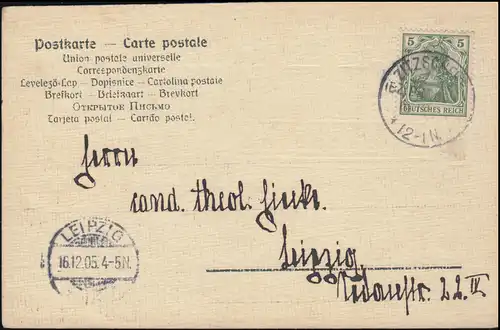 Postkarte — Carte postale
Union postale universelle
Correspondenzkarte
Levelező-Lap — Dopisnice — Cartolina postale
Brefkort — Briefkaart — Brevkort
Открытое Письмо
Tarjeta postal — Cartão postal.
5 5
DEUTSCHES REICH
* 12-1N.
Herrn
cand. theol.
LEIPZIG
16.12.05. 4-5N.
Leipzig
22 IV